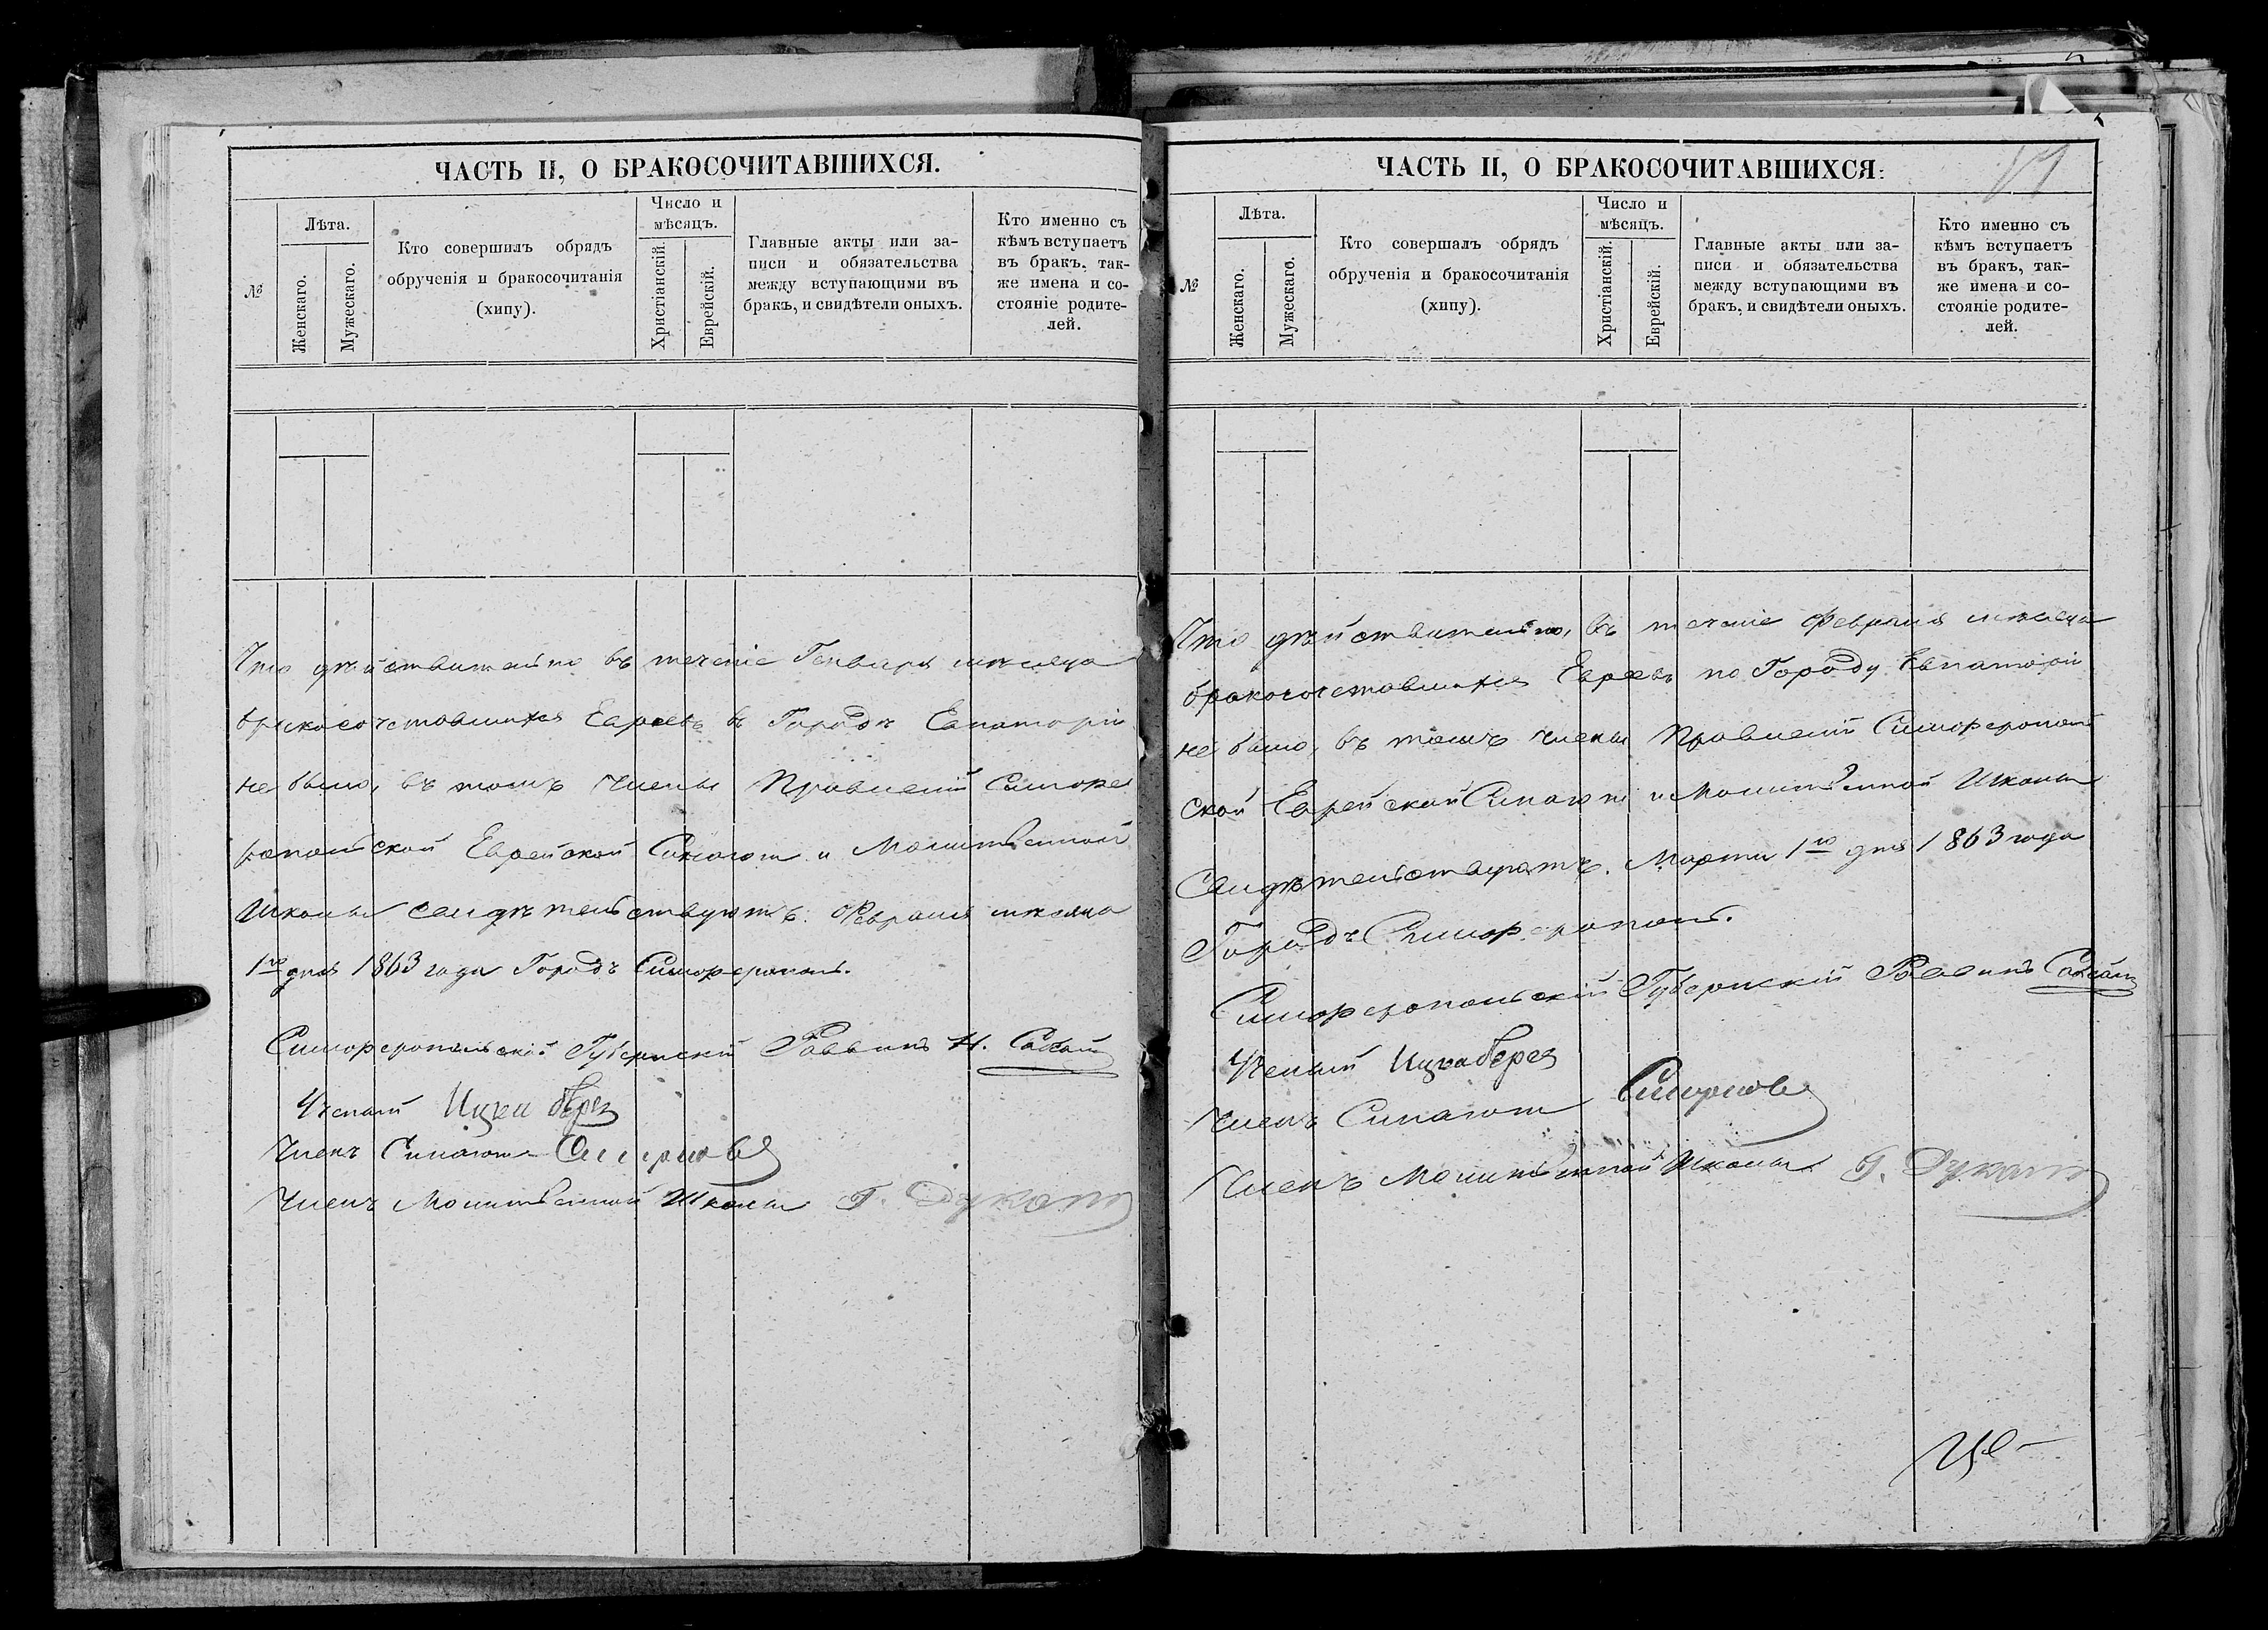 ЧАСТЬ II, О БРАКОСОЧИТАВШИХСЯ.
№
Лѣта.
Женскаго.
Мужескаго.
Кто совершилъ обрядъ
обрученія и бракосочитанія
(хипу).
Число и
мѣсяцъ.
Христіанскій.
Еврейскій.
Главные акты или за-
писи и обязательства
между вступающими въ
бракъ, и свидѣтели оныхъ.
Кто именно съ
кѣмъ вступаетъ
въ бракъ, так-
же имена и со-
стояніе родите-
лей.
Что дѣйствительно въ теченіе Генваря мѣсяца
бракосочетавшихся Евреевъ въ Городѣ Евпаторіи
не было, въ томъ члены Правленій Симфе
ропольской Еврейской Синагоги и Молитвенной
Школы свидѣтельствуютъ. Февраля мѣсяца
1го дня 1863 года Городъ Симферополь.
Симферопольскій Губернскій Раввинъ
Ученый
Членъ Синагоги
Членъ Молитвенной Школы Г.
ЧАСТЬ II, О БРАКОСОЧИТАВШИХСЯ:
№
Лѣта.
Женскаго.
Мужескаго.
Кто совершалъ обрядъ
обрученія и бракосочитанія
(хипу).
Число и
мѣсяцъ.
Христіанскій.
Еврейскій.
Главные акты или за-
писи и обязательства
между вступающими въ
бракъ, и свидѣтели оныхъ.
Кто именно съ
кѣмъ вступаетъ
въ бракъ, так-
же имена и со-
стояніе родите-
лей.
Что дѣйствительно, въ теченіе Февраля мѣсяца
бракосочетавшихся Евреевъ по Городу Евпаторіи
не было, въ томъ члены Правленій Симферополь
ской Еврейской Синагоги и Молитвенной Школы
Свидѣтельствуютъ. Марта 1го дня 1863 года
Городъ Симферополь.
Симферопольскій Губернскій Раввинъ
Ученый
Членъ Синагоги
Членъ Молитвенной Школы Г.